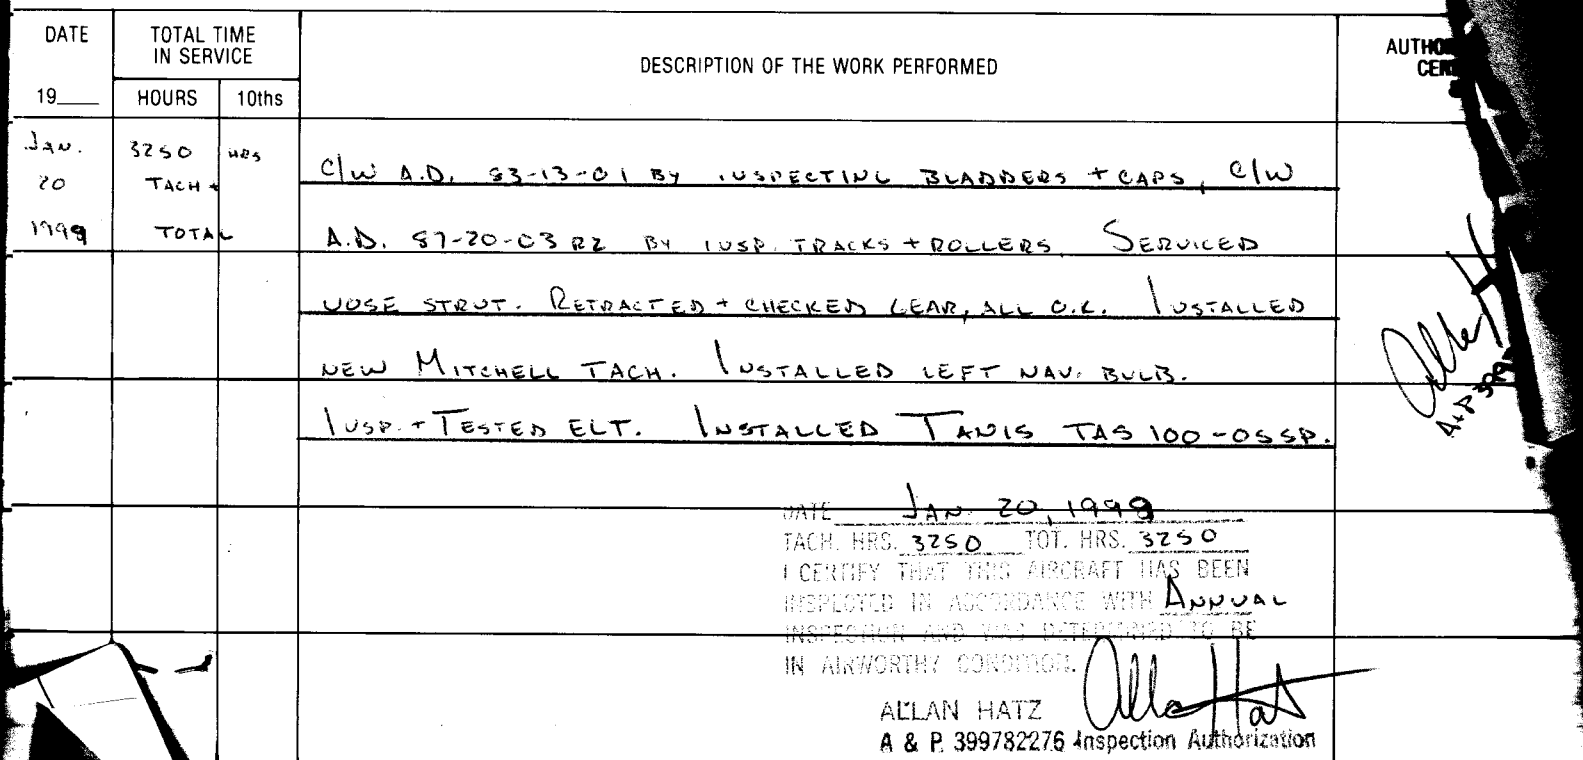 DATE
TOTAL TIME
IN SERVICE
DESCRIPTION OF THE WORK PERFORMED
19___
HOURS 10ths
JAN. 3250 HRS
20 TACH +
1998 TOTAL
C/W A.D. 83-13-01 BY INSPECTING BLADDERS + CAPS, C/W
A.D. 87-20-03 R2 BY INSP. TRACKS + ROLLERS SERVICED
NOSE STRUT. RETRACTED + CHECKED GEAR, ALL O.K. INSTALLED
NEW MITCHELL TACH. INSTALLED LEFT NAV. BULB.
INSP. + TESTED ELT. INSTALLED TANIS TAS 100-05SP.
DATE JAN 20, 1998
TACH. HRS. 3250 TOT. HRS. 3250
I CERTIFY THAT THIS AIRCRAFT HAS BEEN
INSPECTED IN ACCORDANCE WITH ANNUAL
INSPECTION AND WAS DETERMINED TO BE
IN AIRWORTHY CONDITION.
ALLAN HATZ Allan Hatz
A & P 399782276 Inspection Authorization
A+P